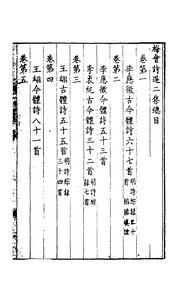 梅會詩選二集總目
卷第一
李應徵古今體詩六十七首
卷第二
李應徵今體詩五十三首
卷第三
李衷純古今體詩三十二首
卷第四
王翃古體詩五十五首
卷第五
王翃今體詩八十一首